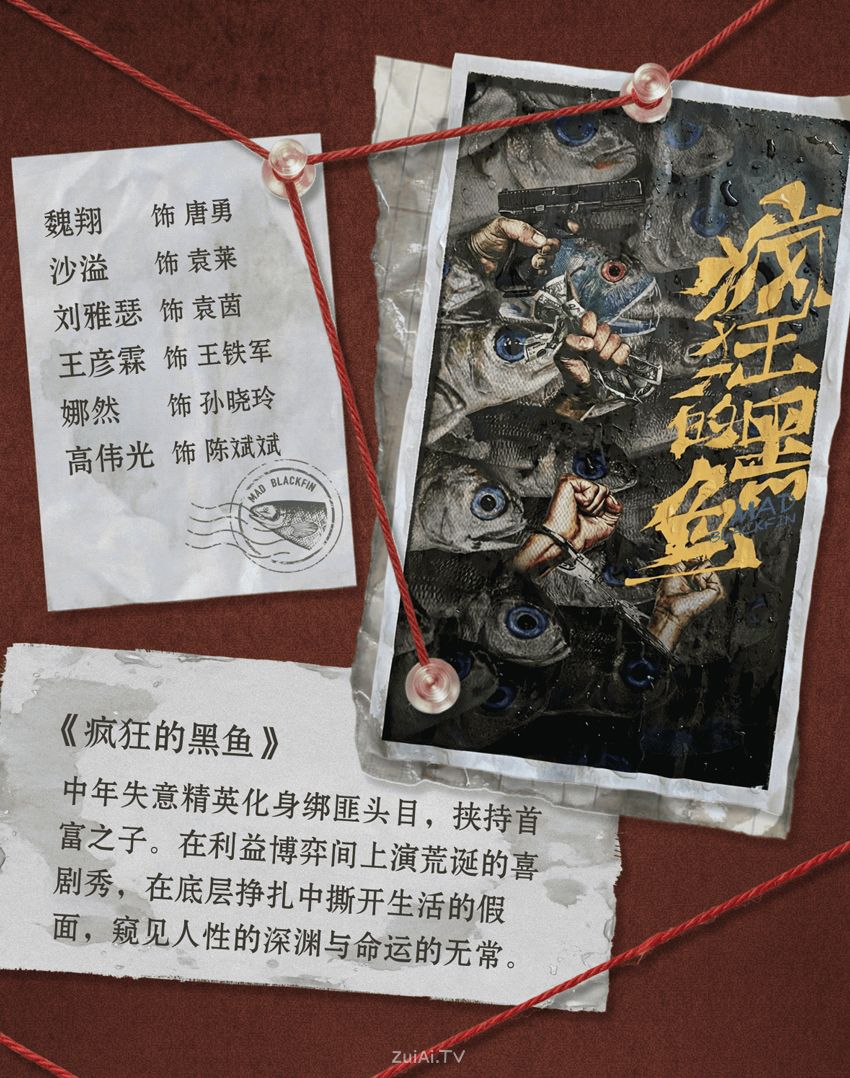 魏翔 饰 唐勇
沙溢 饰 袁莱
刘雅瑟 饰 袁茵
王彦霖 饰 王铁军
娜然 饰 孙晓玲
高伟光 饰 陈斌斌
MAD BLACKFIN
疯狂的黑鱼
MAD
BLACKFIN
《疯狂的黑鱼》
中年失意精英化身绑匪头目，挟持首
富之子。在利益博弈间上演荒诞的喜
剧秀，在底层挣扎中撕开生活的假
面，窥见人性的深渊与命运的无常。
ZuiAi.TV